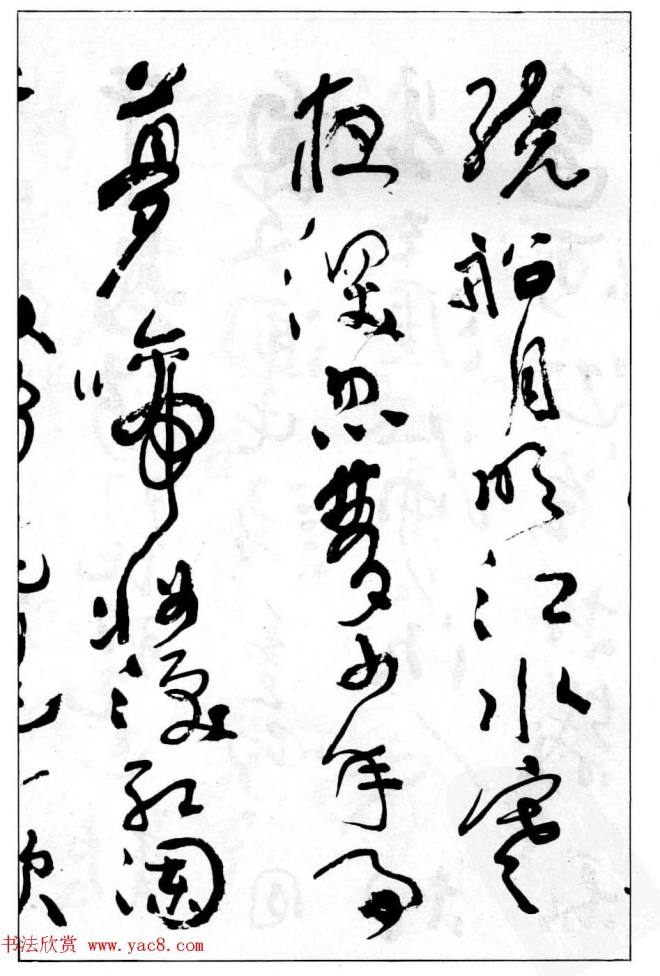 绕船月明江水寒
夜深忽梦少年事
梦啼妆泪红阑
书法欣赏 www.yac8.com